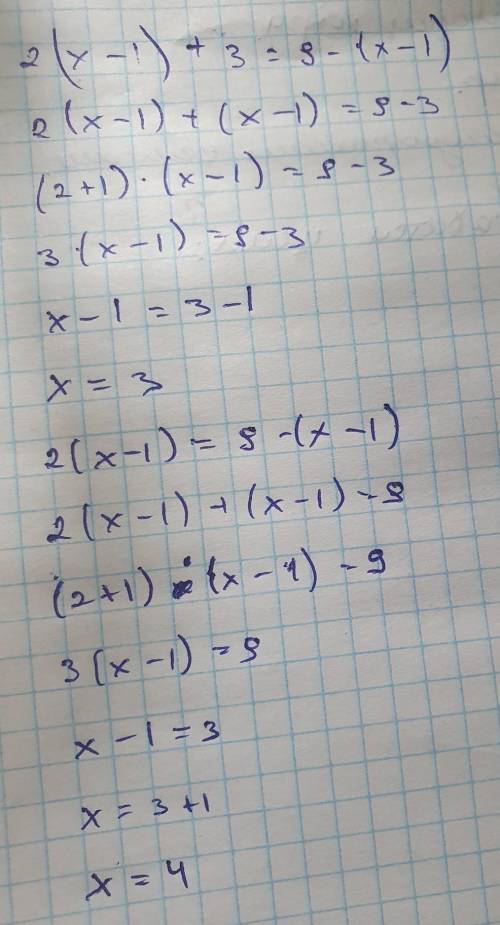 2(x-1)+3=9-(x-1)
2(x-1)+(x-1)=9-3
(2+1)·(x-1)=9-3
3·(x-1)=9-3
x-1=3-1
x=3
2(x-1)=9-(x-1)
2(x-1)+(x-1)=9
(2+1)·(x-1)=9
3(x-1)=9
x-1=3
x=3+1
x=4